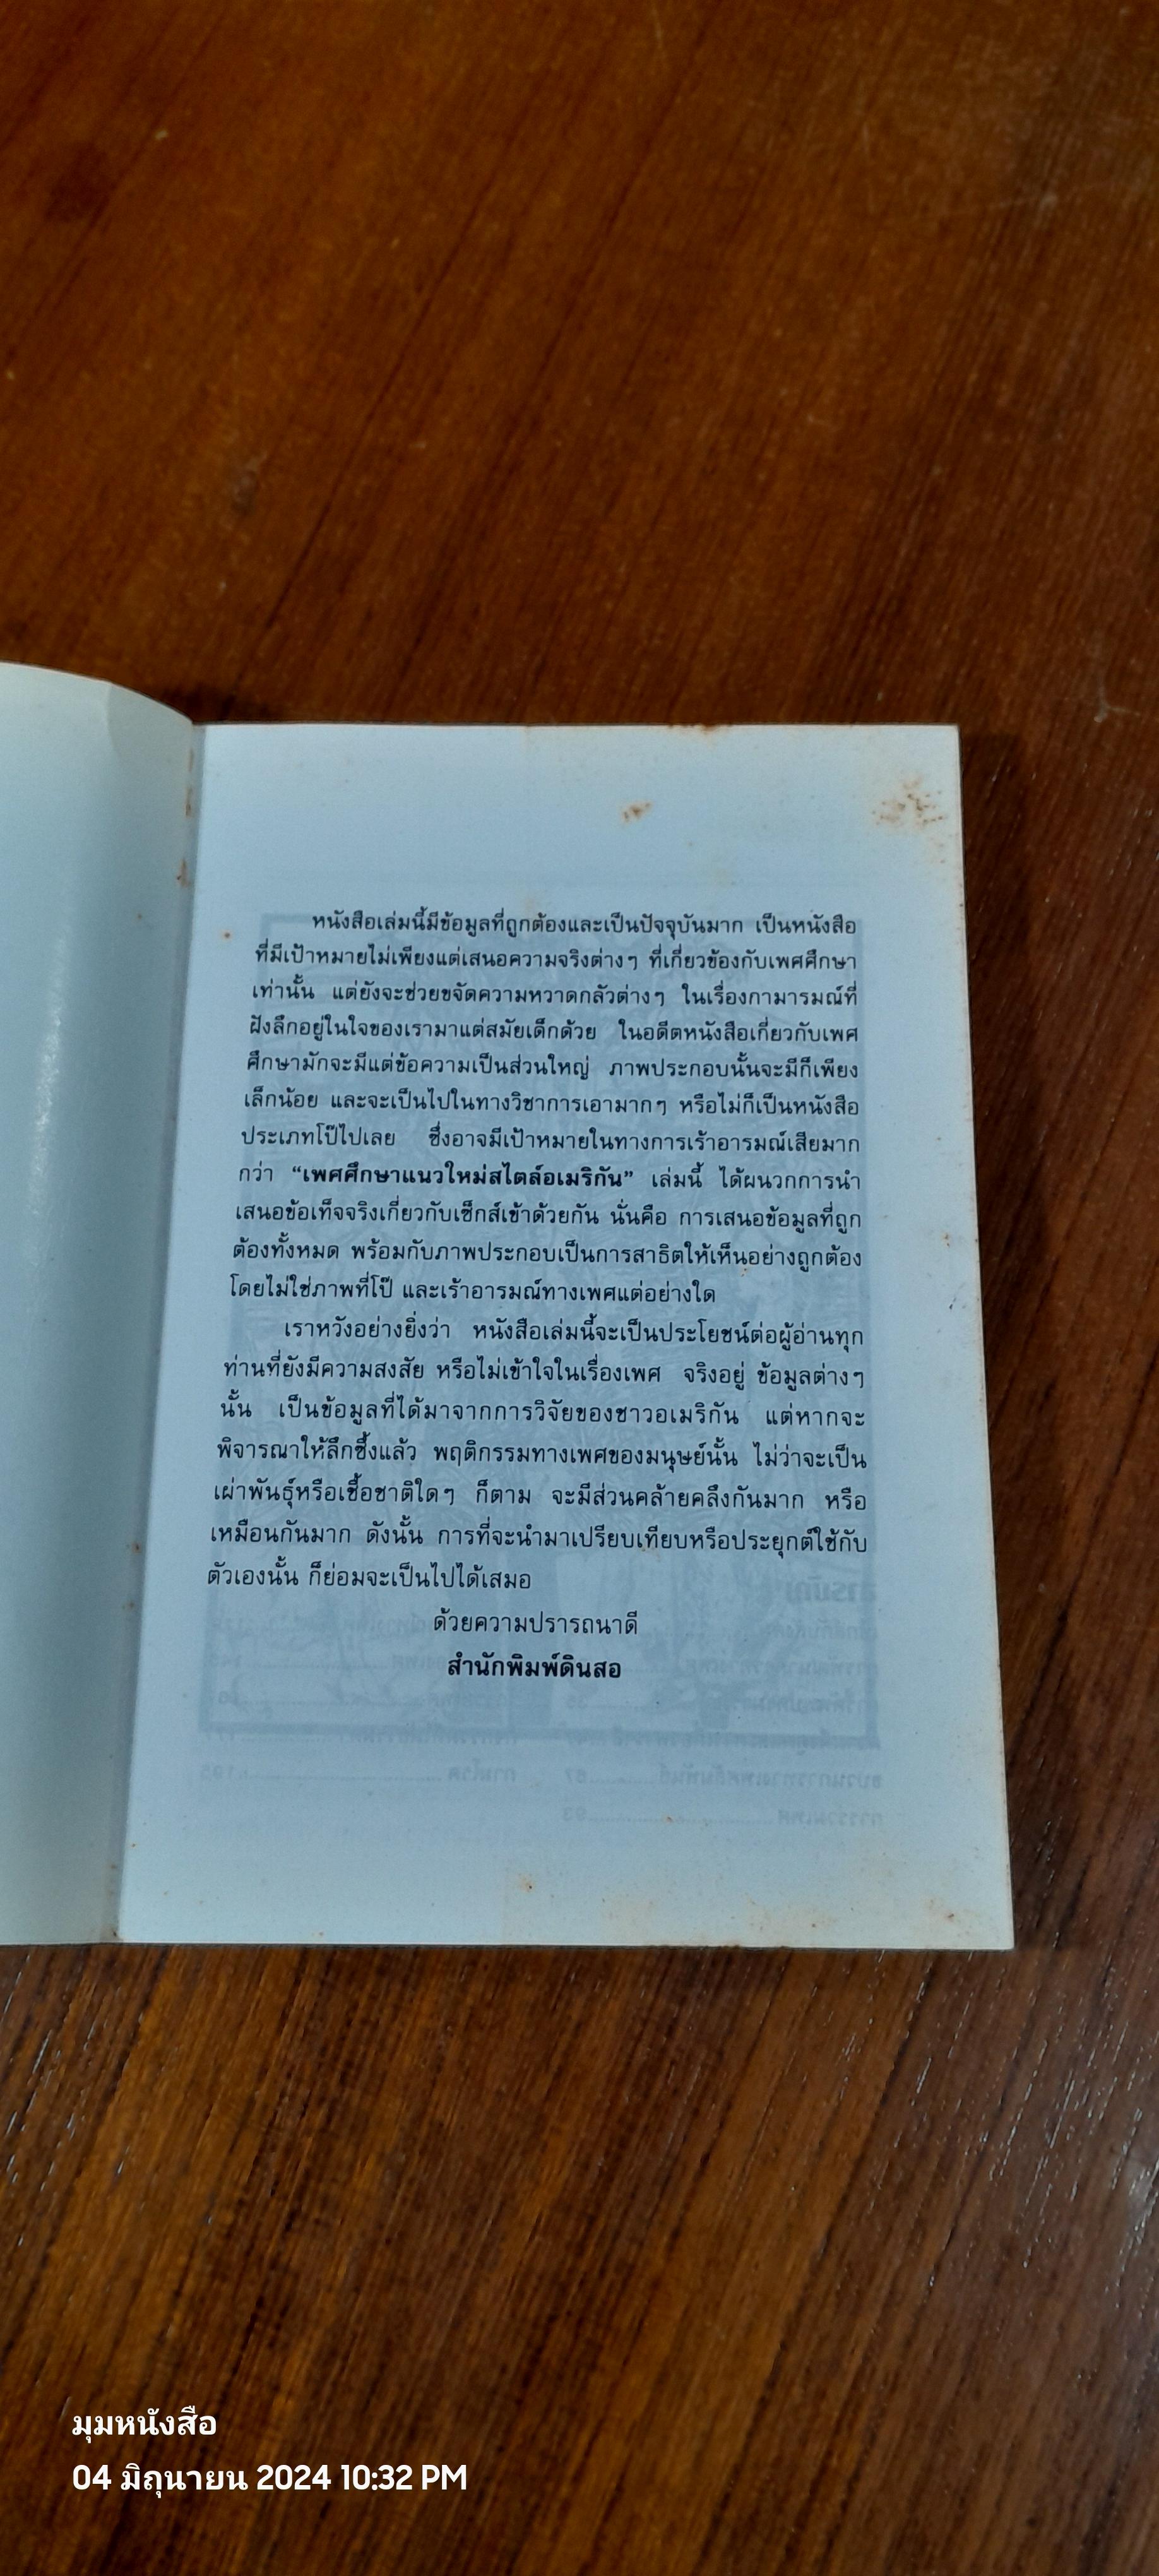 หนังสือเล่มนี้มีข้อมูลที่ถูกต้องและเป็นปัจจุบันมาก เป็นหนังสือ
ที่มีเป้าหมายไม่เพียงแต่เสนอความจริงต่างๆ ที่เกี่ยวข้องกับเพศศึกษา
เท่านั้น แต่ยังจะช่วยขจัดความหวาดกลัวต่างๆ ในเรื่องกามารมณ์ที่
ฝังลึกอยู่ในใจของเรามาแต่สมัยเด็กด้วย ในอดีตหนังสือเกี่ยวกับเพศ
ศึกษามักจะมีแต่ข้อความเป็นส่วนใหญ่ ภาพประกอบนั้นจะมีก็เพียง
เล็กน้อย และจะเป็นไปในทางวิชาการเอามากๆ หรือไม่ก็เป็นหนังสือ
ประเภทโป๊ไปเลย ซึ่งอาจมีเป้าหมายในทางการเร้าอารมณ์เสียมาก
กว่า “เพศศึกษาแนวใหม่สไตล์อเมริกัน” เล่มนี้ ได้ผนวกการนำ
เสนอข้อเท็จจริงเกี่ยวกับเซ็กส์เข้าด้วยกัน นั่นคือ การเสนอข้อมูลที่ถูก
ต้องทั้งหมด พร้อมกับภาพประกอบเป็นการสาธิตให้เห็นอย่างถูกต้อง
โดยไม่ใช่ภาพที่โป๊ และเร้าอารมณ์ทางเพศแต่อย่างใด
เราหวังอย่างยิ่งว่า หนังสือเล่มนี้จะเป็นประโยชน์ต่อผู้อ่านทุก
ท่านที่ยังมีความสงสัย หรือไม่เข้าใจในเรื่องเพศ จริงอยู่ ข้อมูลต่างๆ
นั้น เป็นข้อมูลที่ได้มาจากการวิจัยของชาวอเมริกัน แต่หากจะ
พิจารณาให้ลึกซึ้งแล้ว พฤติกรรมทางเพศของมนุษย์นั้น ไม่ว่าจะเป็น
เผ่าพันธุ์หรือเชื้อชาติใดๆ ก็ตาม จะมีส่วนคล้ายคลึงกันมาก หรือ
เหมือนกันมาก ดังนั้น การที่จะนำมาเปรียบเทียบหรือประยุกต์ใช้กับ
ตัวเองนั้น ก็ย่อมจะเป็นไปได้เสมอ
ด้วยความปรารถนาดี
สำนักพิมพ์ดินสอ
มุมหนังสือ
04 มิถุนายน 2024 10:32 PM